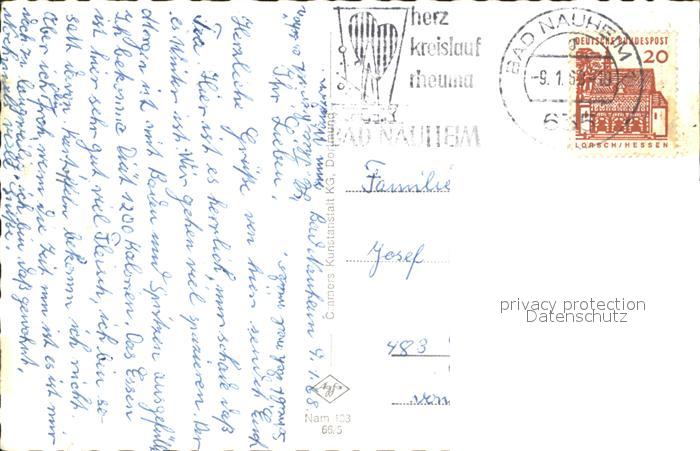 herz
kreislauf
rheuma
BAD NAUHEIM
BAD NAUHEIM
-9.1.6
DEUTSCHE BUNDESPOST
20
LORSCH/HESSEN
Familie
Josef
483
privacy protection
Datenschutz
Cramers Kunstanstalt KG, Dortmund
Nam 103
66/5
Bad Nauheim 9.1.68.
Ihr Lieben,
Herzliche Grüße von hier sendet Euch
Tea. Hier ist es herrlich, nur schade daß
es Winter ist. Wir gehen viel spazieren. Der
Morgen ist mit Baden und Spritzen ausgefüllt
Ich bekomme Diät 1200 Kalorien. Das Essen
ist hier sehr gut viel Fleisch, ich bin so
satt denn Kartoffeln bekomm ich nicht.
Aber ich froh wenn die Zeit um ist es ist mir
doch zu langweilig, ich bin daß gewohnt,